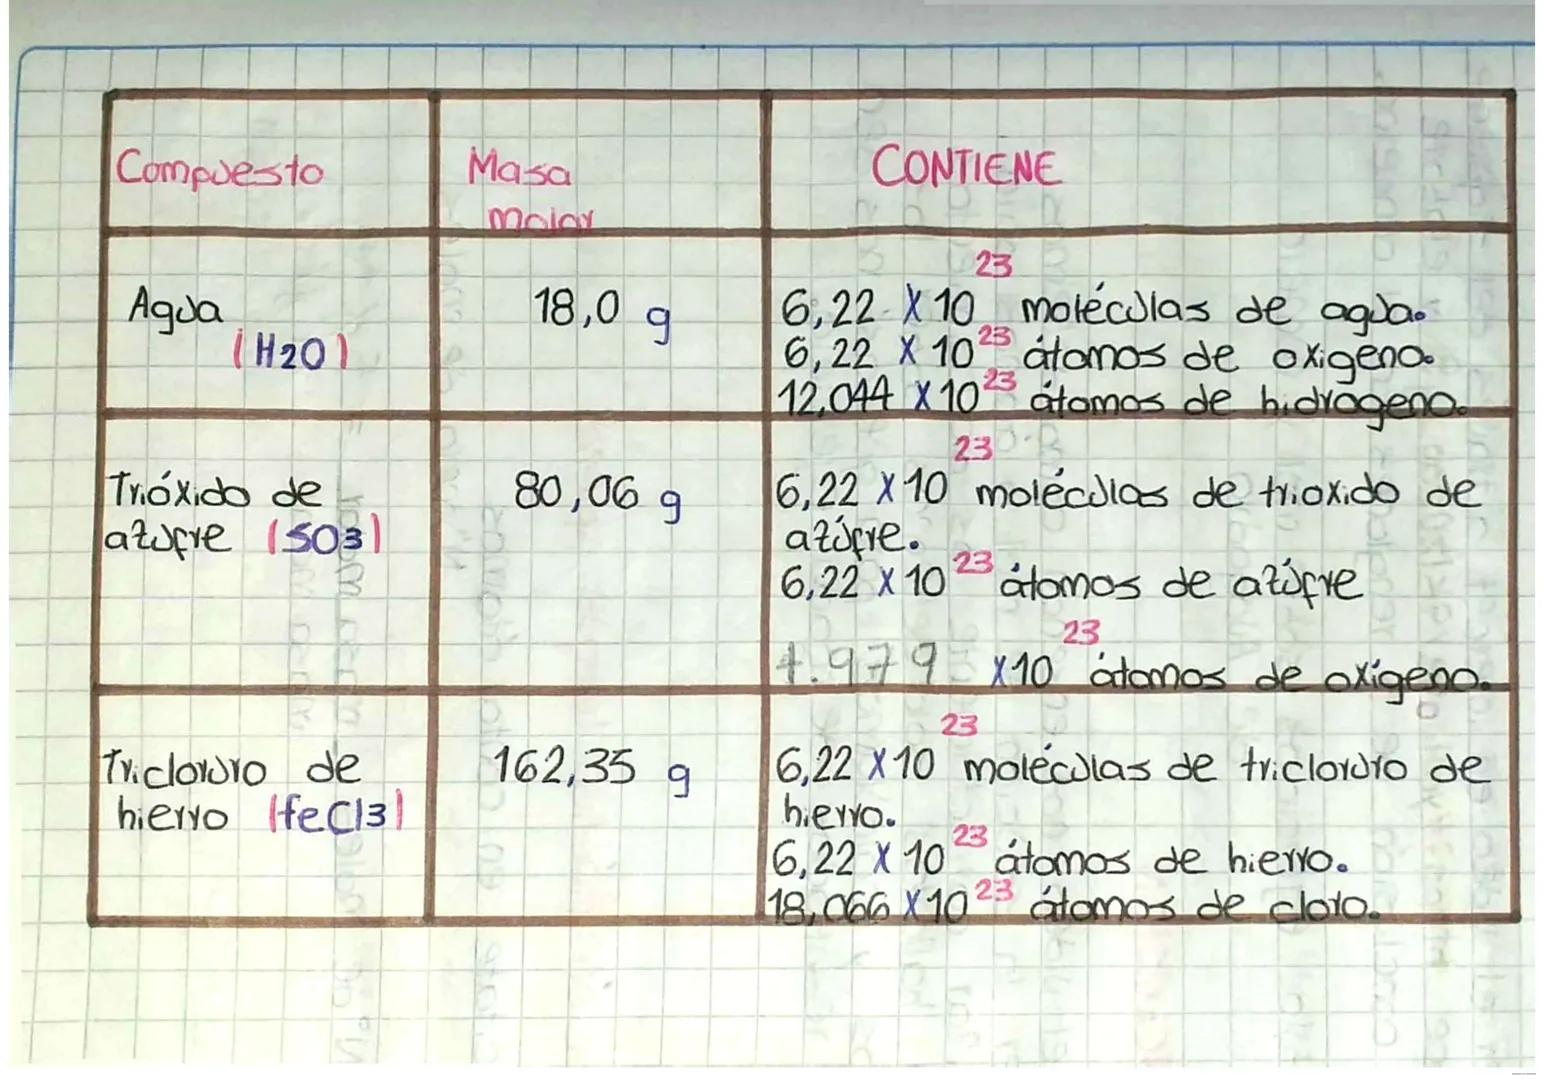 Compuesto Masa CONTIENE
molar
Agua
(H2O)
18,0 g
6,22 X 10²³ moléculas de agua.
6,22 X 10²³ átomos de oxigeno.
12,044 X 10²³ átomos de hidrogeno.
Trióxido de
azufre (SO3)
80,06 g
6,22 X 10²³ moléculas de trioxido de
azúfre.
6,22 X 10²³ átomos de azúfre
1.979 X10²³ átomos de oxígeno.
Tricloruro de
hierro (feCl3)
162,35 g
6,22 X 10²³ moléculas de tricloruro de
hierro.
6,22 X 10²³ átomos de hierro.
18,066 X 10²³ átomos de cloro.